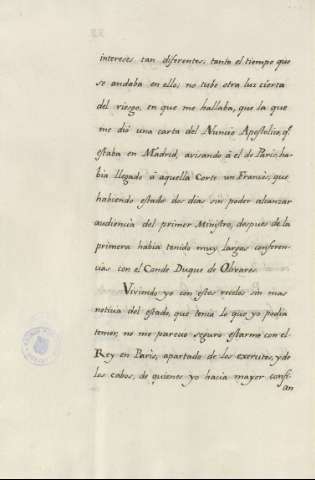 intereses tan diferentes, tanto el tiempo que
se andaba en ello, no tube otra luz cierta
del riesgo, en que me hallaba, que la que
me dió una carta del Nuncio Apostolico, qe
estaba en Madrid, avisando á el de Paris, ha-
bia llegado á aquella Corte un Francés, que
habiendo estado dos dias sin poder alcanzar
audiencia del primer Ministro, despues de la
primera habia tenido muy largas conferen-
cias con el Conde Duque de Olivares.
Viviendo yo con estos recelos sin mas
noticia del estado, que tenia lo que yo podia
temer, no me pareció seguro estarme con el
Rey en Paris, apartado de los exercitos, y de
los cabos, de quienes yo hacia mayor confi-
an